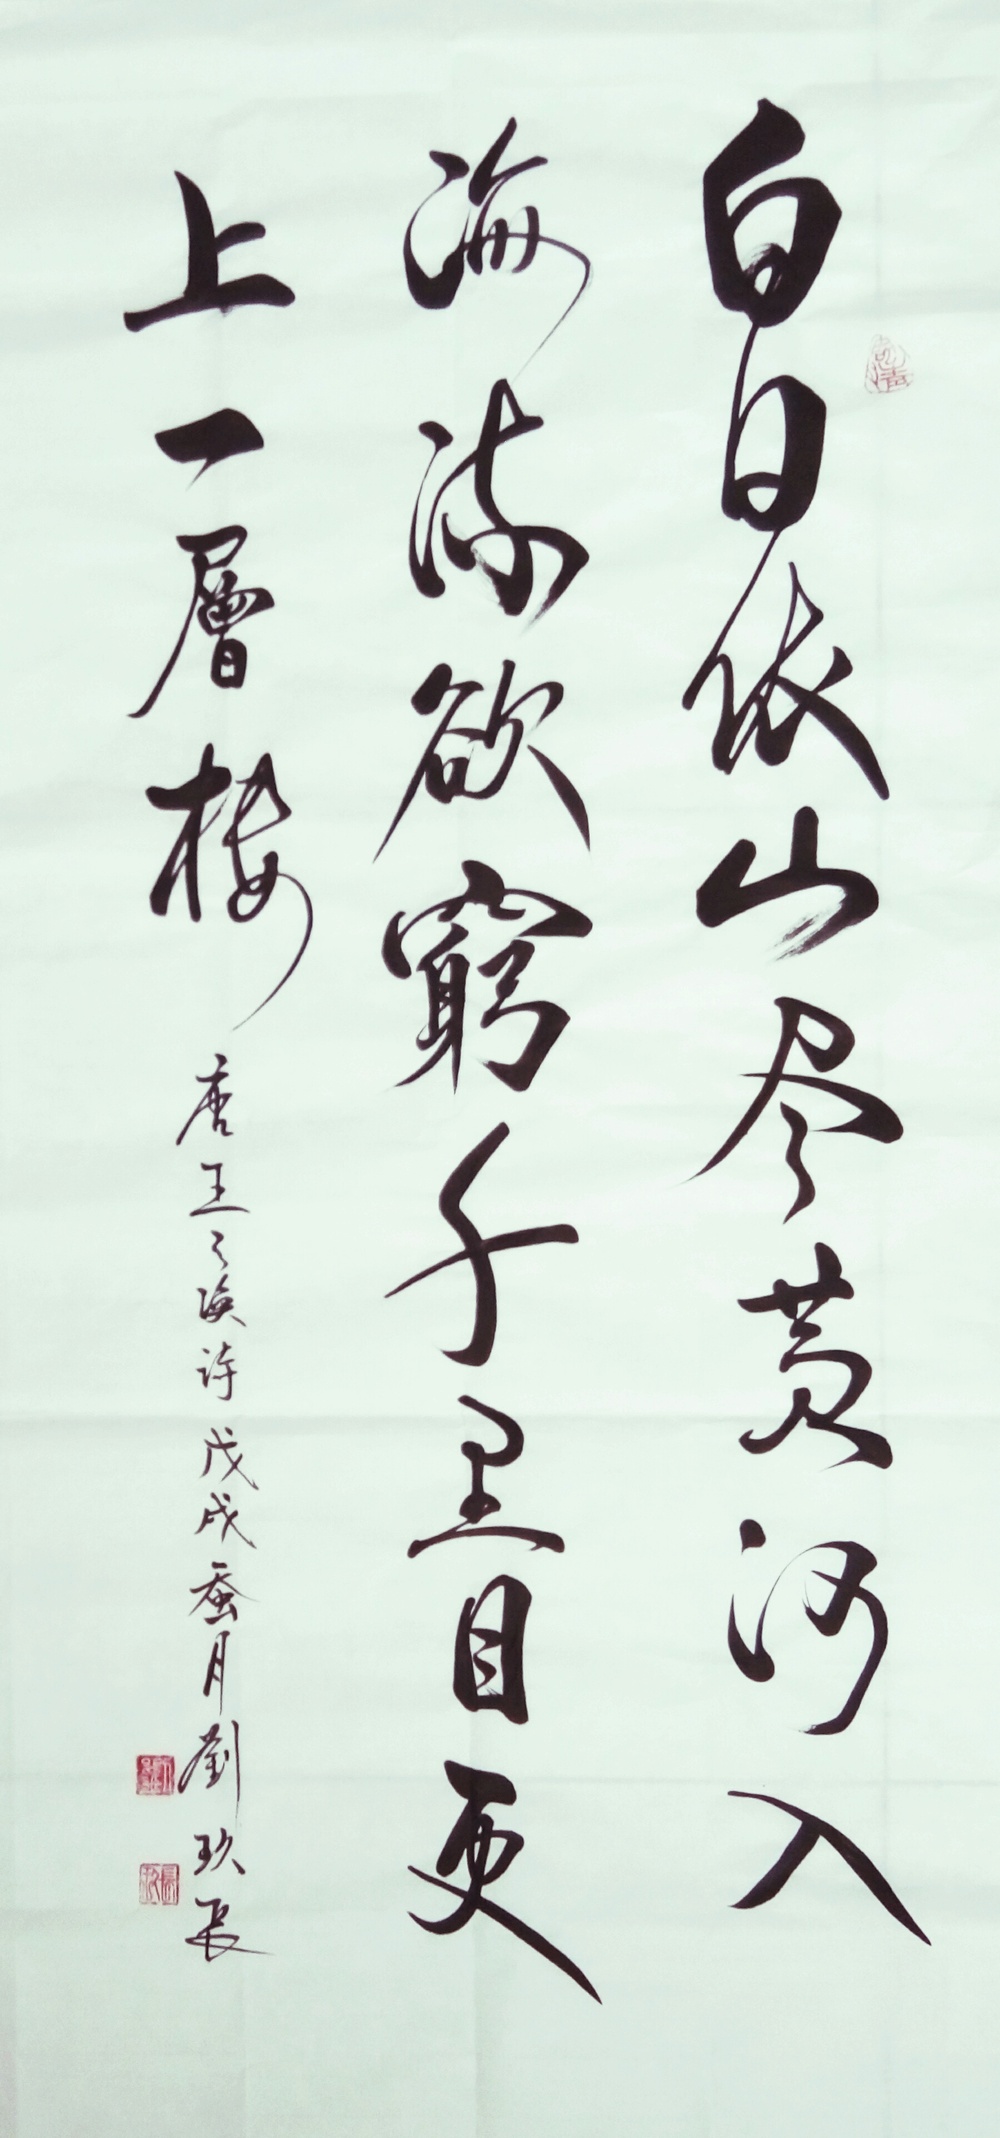 白日依山尽黄河入
海流欲窮千里目更
上一層楼
唐王之涣诗戊戌蚕月劉玖長